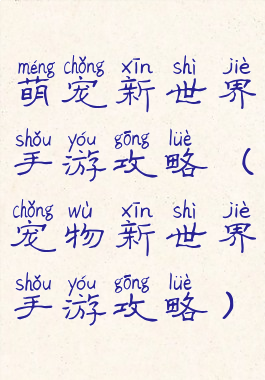 méng chǒng xīn shì jiè
萌宠新世界
shǒu yóu gōng lüè
手游攻略（
chǒng wù xīn shì jiè
宠物新世界
shǒu yóu gōng lüè
手游攻略）